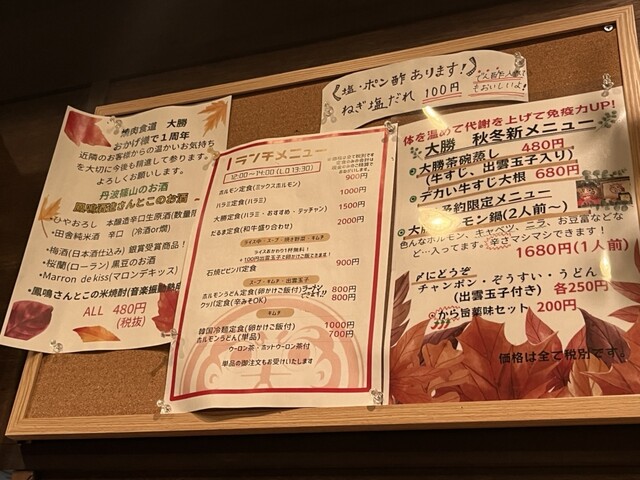 塩・ポン酢あります!
ねぎ塩だれ 100円
焼肉食道 大勝
おかげ様で1周年
近隣のお客様からの温かいお気持ち
を大切に今後も精進して参ります。
よろしくお願いします。
丹波福山のお酒
鳳鳴酒造さんとこのお酒
・ひやおろし 本醸造辛口生原酒(数量限
・田舎純米酒 辛口 (冷酒or燗)
・梅酒(日本酒仕込み)銀賞受賞商品!
・桜蘭(ローラン)黒豆のお酒
・Marron de kiss(マロンデキッス)
・鳳鳴さんとこの米焼酎(音楽振動熟成
ALL 480円
(税抜)
ランチメニュー
12:00〜14:00(L.O 13:30)
ホルモン定食(ミックスホルモン)
900円
ハラミ定食(ハラミ)
1000円
大勝定食(ハラミ・おすすめ・テッチャン)
1500円
だるま定食(和牛盛り合わせ)
2000円
ライス中・スープ・焼き野菜・キムチ
ライスおかわり1杯無料!
+100円出雲玉子で卵かけご飯にできます。
石焼ビビンバ定食 900円
スープ・キムチ・出雲玉子
ホルモンうどん定食(卵かけご飯付) 800円
クッパ定食(辛みもOK) 800円
キムチ
韓国冷麺定食(卵かけご飯付) 1000円
ホルモンうどん(単品) 700円
ウーロン茶・ホットウーロン茶付
単品の御注文もお受けいたします
体を温めて代謝を上げて免疫力UP!
大勝 秋冬新メニュー
大勝茶碗蒸し 480円
(牛すじ、出雲玉子入り)
デカい牛すじ大根 680円
予約限定メニュー
モン鍋(2人前〜)
色んなホルモン、キャベツ、ニラ、お豆富などな
ど…入ってます。辛さマシマシできます!
1680円(1人前)
〆にどうぞ
チャンポン・ぞうすい・うどん
(出雲玉子付き) 各250円
から旨薬味セット 200円
価格は全て税別です。